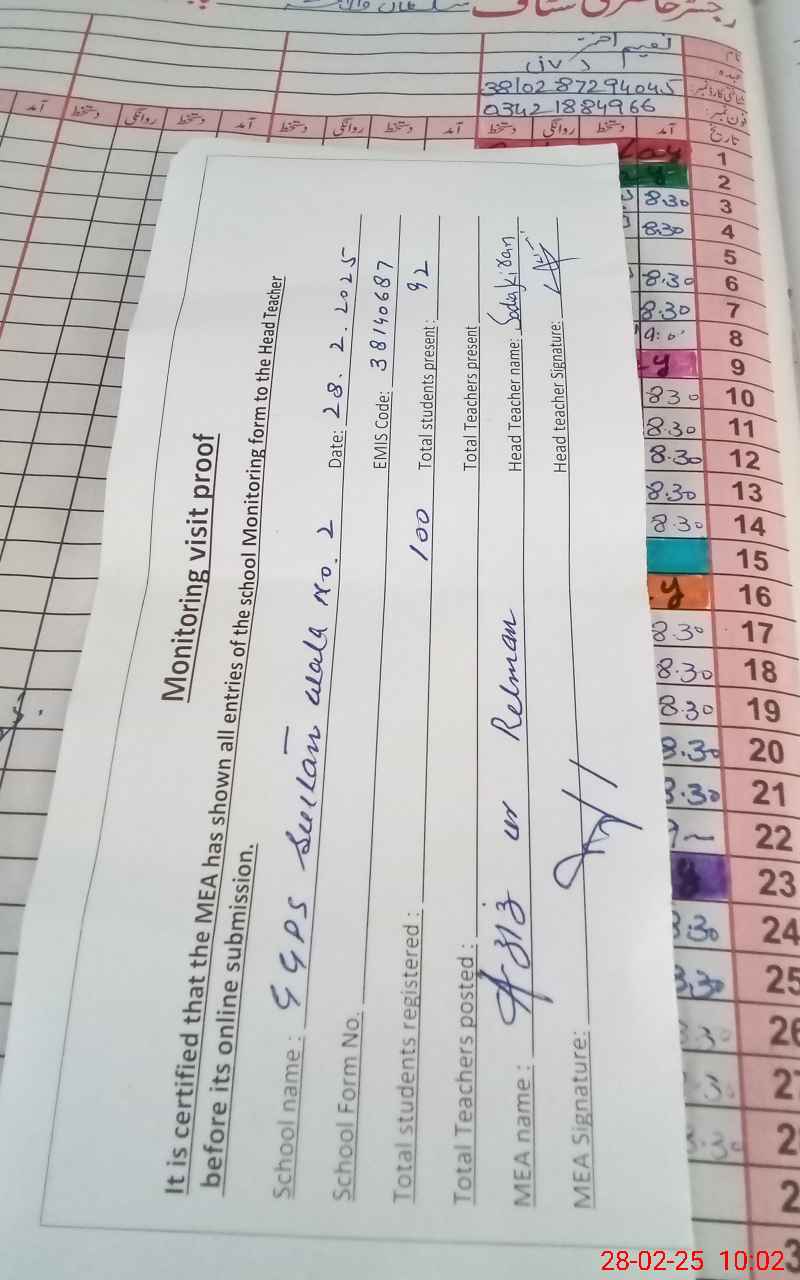 رجسٹر حاضری سٹاف
نام
نعیم اختر
عہدہ
شناختی کارڈ نمبر:
38102 8729404.5
فون نمبر:
03421884966
تاریخ آمد دستخط روانگی دستخط آمد دستخط روانگی دستخط آمد دستخط روانگی دستخط آمد
1
2
3 8.30
4 8.30
5
6 8.30
7 8.30
8
9 y
10 830
11 8.30
12 8.30
13 8.30
14 8.30
15
16 y
17 8.30
18 8.30
19 8.30
20 8.30
21 8.30
22
23
24 8.30
25 8.30
26
27
Monitoring visit proof
It is certified that the MEA has shown all entries of the school Monitoring form to the Head Teacher
before its online submission.
School name : GGPS Sultan wala No. 2 Date: 28.2.2025
School Form No. EMIS Code: 38140687
Total students registered : 100 Total students present : 92
Total Teachers posted : Total Teachers present
MEA name : Aziz ur Rehman Head Teacher name: Sadia Kiran
MEA Signature: Head teacher Signature:
28-02-25 10:02